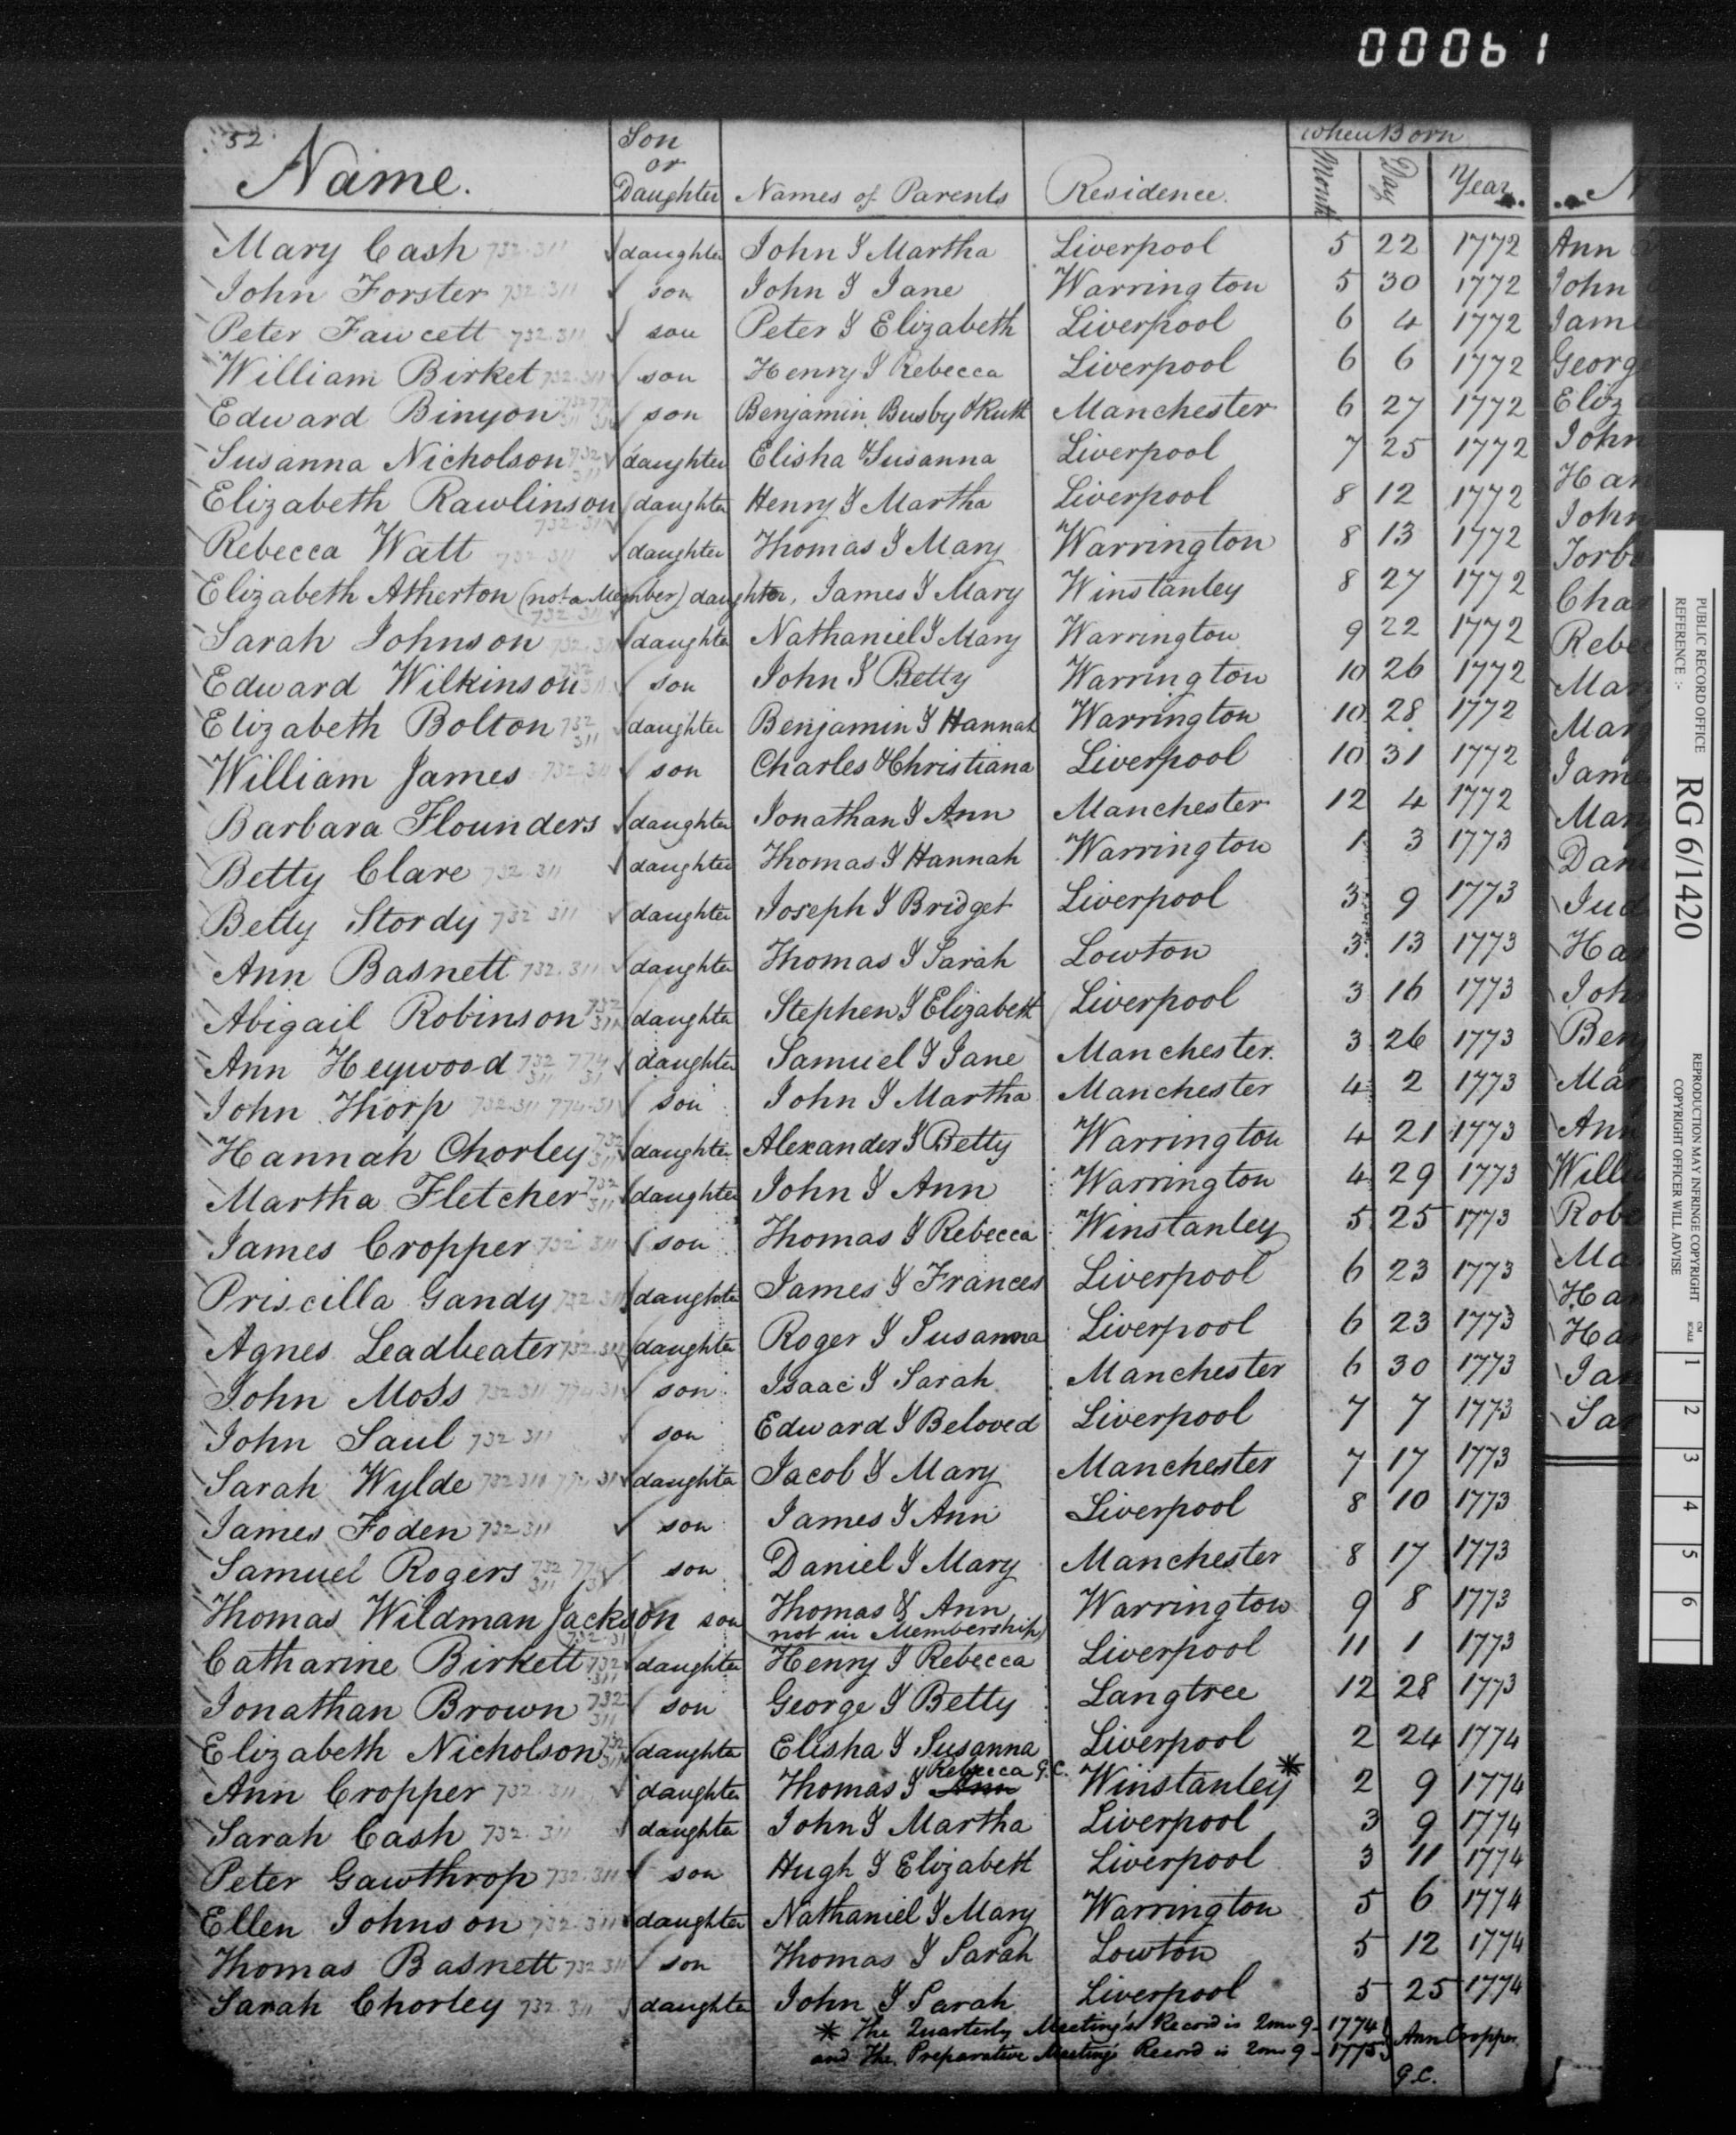 00061
52
Name. Son or Daughter Names of Parents Residence. when Born Month Day Year
Mary Cash 732.311 daughter John & Martha Liverpool 5 22 1772
John Forster 732.311 son John & Jane Warrington 5 30 1772
Peter Fawcett 732.311 son Peter & Elizabeth Liverpool 6 4 1772
William Birket 732.311 son Henry & Rebecca Liverpool 6 6 1772
Edward Binyon son Benjamin Busby & Ruth Manchester 6 27 1772
Susanna Nicholson 732 311 daughter Elisha & Susanna Liverpool 7 25 1772
Elizabeth Rawlinson 732.311 daughter Henry & Martha Liverpool 8 12 1772
Rebecca Watt 732 311 daughter Thomas & Mary Warrington 8 13 1772
Elizabeth Atherton (not a Member) 732.311 daughter, James & Mary Winstanley 8 27 1772
Sarah Johnson 732.311 daughter Nathaniel & Mary Warrington 9 22 1772
Edward Wilkinson 732 311 son John & Betty Warrington 10 26 1772
Elizabeth Bolton 732 311 daughter Benjamin & Hannah Warrington 10 28 1772
William James 732.311 son Charles & Christiana Liverpool 10 31 1772
Barbara Flounders daughter Jonathan & Ann Manchester 12 4 1772
Betty Clare 732 311 daughter Thomas & Hannah Warrington 1 3 1773
Betty Stordy 732 311 daughter Joseph & Bridget Liverpool 3 9 1773
Ann Basnett 732.311 daughter Thomas & Sarah Lowton 3 13 1773
Abigail Robinson 732 311 daughter Stephen & Elizabeth Liverpool 3 16 1773
Ann Heywood 732 774 311 31 daughter Samuel & Jane Manchester. 3 26 1773
John Thorp 732.311 774.31 son John & Martha Manchester 4 2 1773
Hannah Chorley 732 311 daughter Alexander & Betty Warrington 4 21 1773
Martha Fletcher 732 311 daughter John & Ann Warrington 4 29 1773
James Cropper 732 311 son Thomas & Rebecca Winstanley 5 25 1773
Priscilla Gandy 732.311 daughter James & Frances Liverpool 6 23 1773
Agnes Leadbeater 732.311 daughter Roger & Susanna Liverpool 6 23 1773
John Moss 732 311 774 31 son Isaac & Sarah Manchester 6 30 1773
John Saul 732 311 son Edward & Beloved Liverpool 7 7 1773
Sarah Wylde 732 311 774 31 daughter Jacob & Mary Manchester 7 17 1773
James Foden 732 311 son James & Ann Liverpool 8 10 1773
Samuel Rogers 732 774 311 31 son Daniel & Mary Manchester 8 17 1773
Thomas Wildman Jackson son Thomas & Ann Warrington 9 8 1773
not in Membership
Catharine Birkett 732 311 daughter Henry & Rebecca Liverpool 11 1 1773
Jonathan Brown 732 311 son George & Betty Langtree 12 28 1773
Elizabeth Nicholson 732 311 daughter Elisha & Susanna Liverpool 2 24 1774
Rebecca G.C.
Ann Cropper 732.311 daughter Thomas & Ann Winstanley* 2 9 1774
Sarah Cash 732.311 daughter John & Martha Liverpool 3 9 1774
Peter Gawthrop 732.311 son Hugh & Elizabeth Liverpool 3 11 1774
Ellen Johnson 732.311 daughter Nathaniel & Mary Warrington 5 6 1774
Thomas Basnett 732 311 son Thomas & Sarah Lowton 5 12 1774
Sarah Chorley 732.311 daughter John & Sarah Liverpool 5 25 1774
* The Quarterly Meeting's Record is 2mo 9 - 1774
and the Preparative Meeting's Record is 2mo 9 - 1775 } Ann Cropper
G.C.
Ann
John
Jame
Georg
Eliz
John
Han
John
Torb
Char
Rebe
Mar
Mar
Jame
Mar
Dan
Jud
Ha
Joh
Ben
Mar
Ann
Willi
Robe
Ma
Han
Ha
Jan
Sar
PUBLIC RECORD OFFICE
REFERENCE :-
RG 6/1420
REPRODUCTION MAY INFRINGE COPYRIGHT
COPYRIGHT OFFICER WILL ADVISE
CM
SCALE
1
2
3
4
5
6